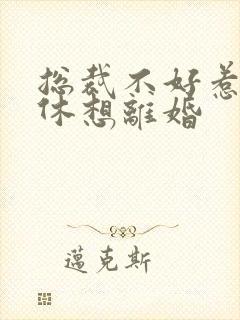 总裁不好惹
休想離婚
邁克斯